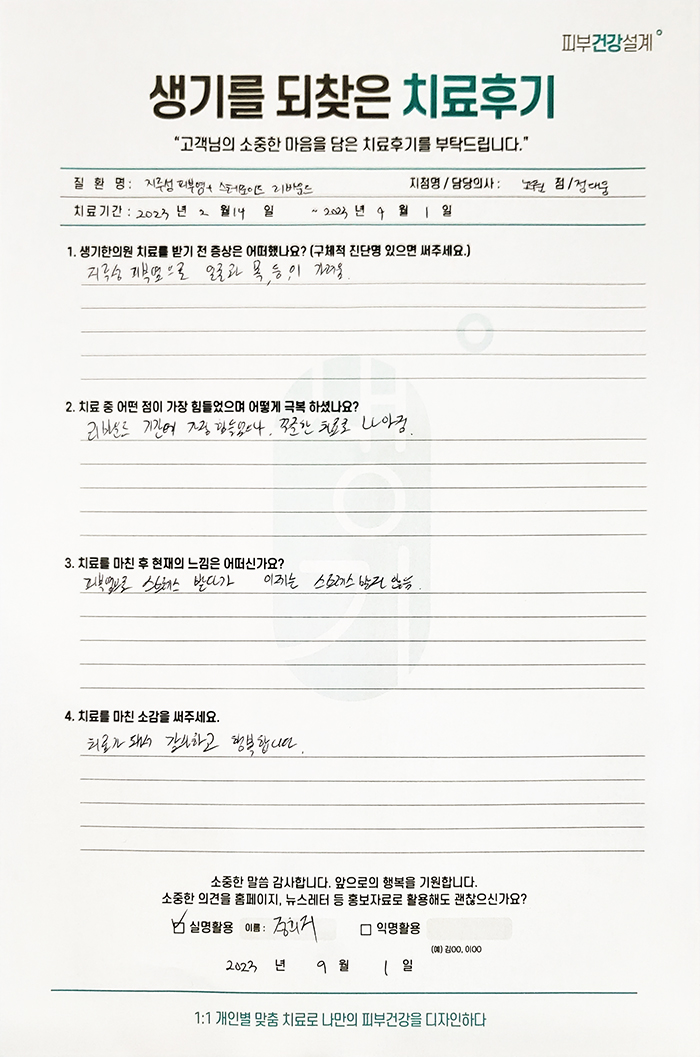 피부건강설계
생기를 되찾은 치료후기
“고객님의 소중한 마음을 담은 치료후기를 부탁드립니다.”
질 환 명 : 지루성 피부염+ 스테로이드 리바운드 지점명 / 담당의사 : 노원 점 / 정대웅
치료기간 : 2023 년 2 월 14 일 ~ 2023 년 9 월 1 일
1. 생기한의원 치료를 받기 전 증상은 어떠했나요? (구체적 진단명 있으면 써주세요.)
지루성 피부염으로 얼굴과 목, 등, 이 가려움.
2. 치료 중 어떤 점이 가장 힘들었으며 어떻게 극복 하셨나요?
리바운드 기간에 가장 힘들었으나. 꾸준한 치료로 나아짐.
3. 치료를 마친 후 현재의 느낌은 어떠신가요?
피부염으로 스트레스 받다가 이제는 스트레스 받지 않음.
4. 치료를 마친 소감을 써주세요.
치료가 돼서 감사하고 행복합니다.
생기
소중한 말씀 감사합니다. 앞으로의 행복을 기원합니다.
소중한 의견을 홈페이지, 뉴스레터 등 홍보자료로 활용해도 괜찮으신가요?
실명활용 이름 : 익명활용
(예) 김OO, 이OO
2023 년 9 월 1 일
1:1 개인별 맞춤 치료로 나만의 피부건강을 디자인하다